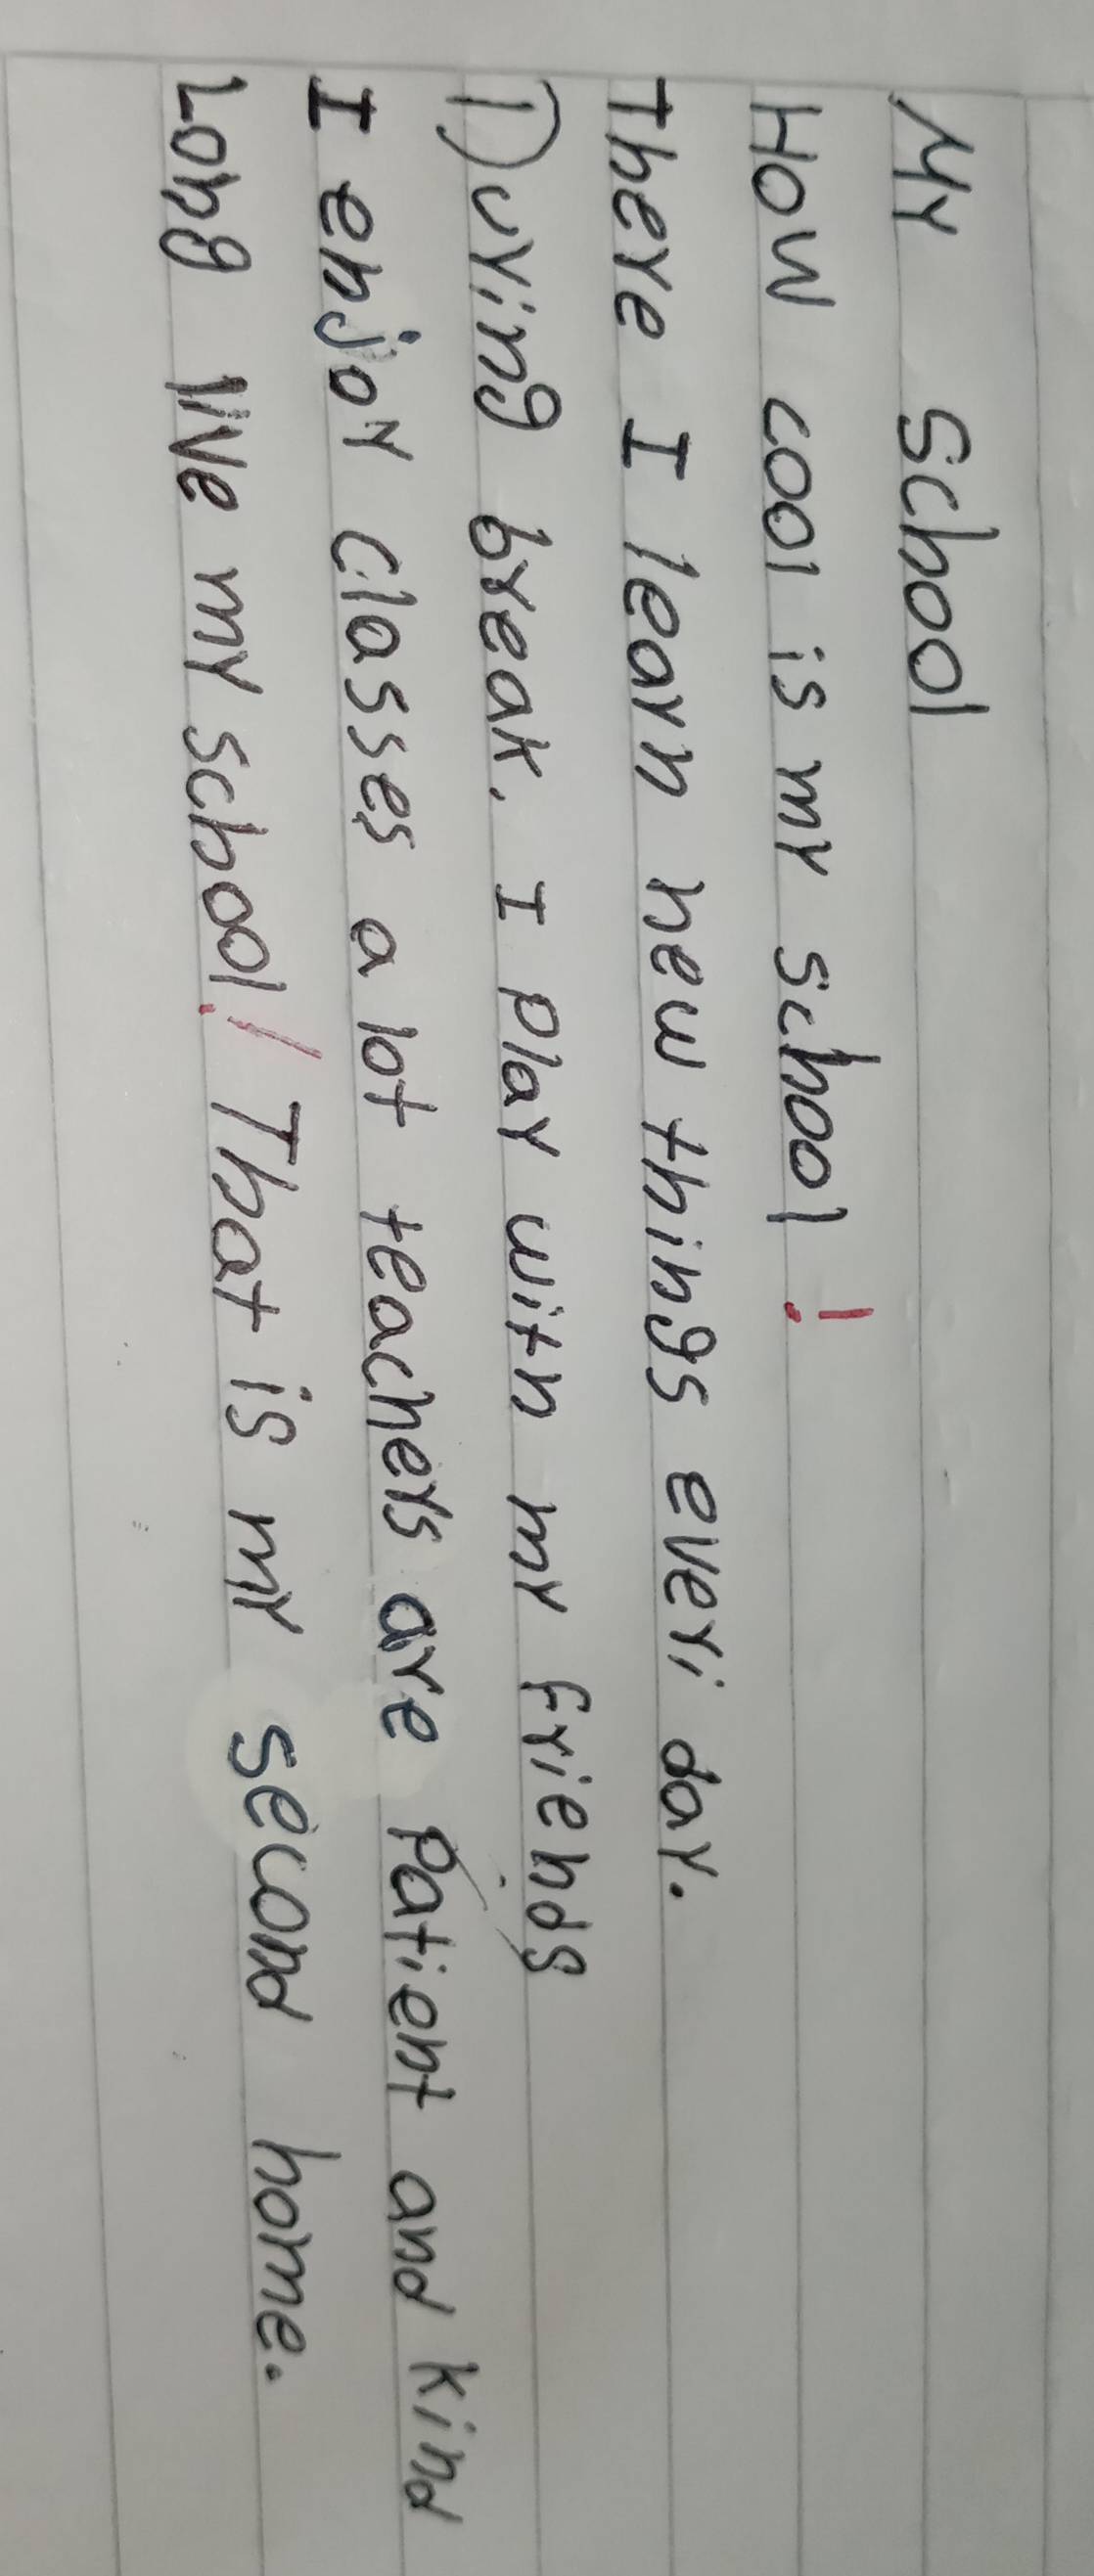 My school
How cool is my school !
There I learn new things everi day.
During break, I play with my friends
I enjoy classes a lot teachers are patient and kind
Long live my school! That is my second home.